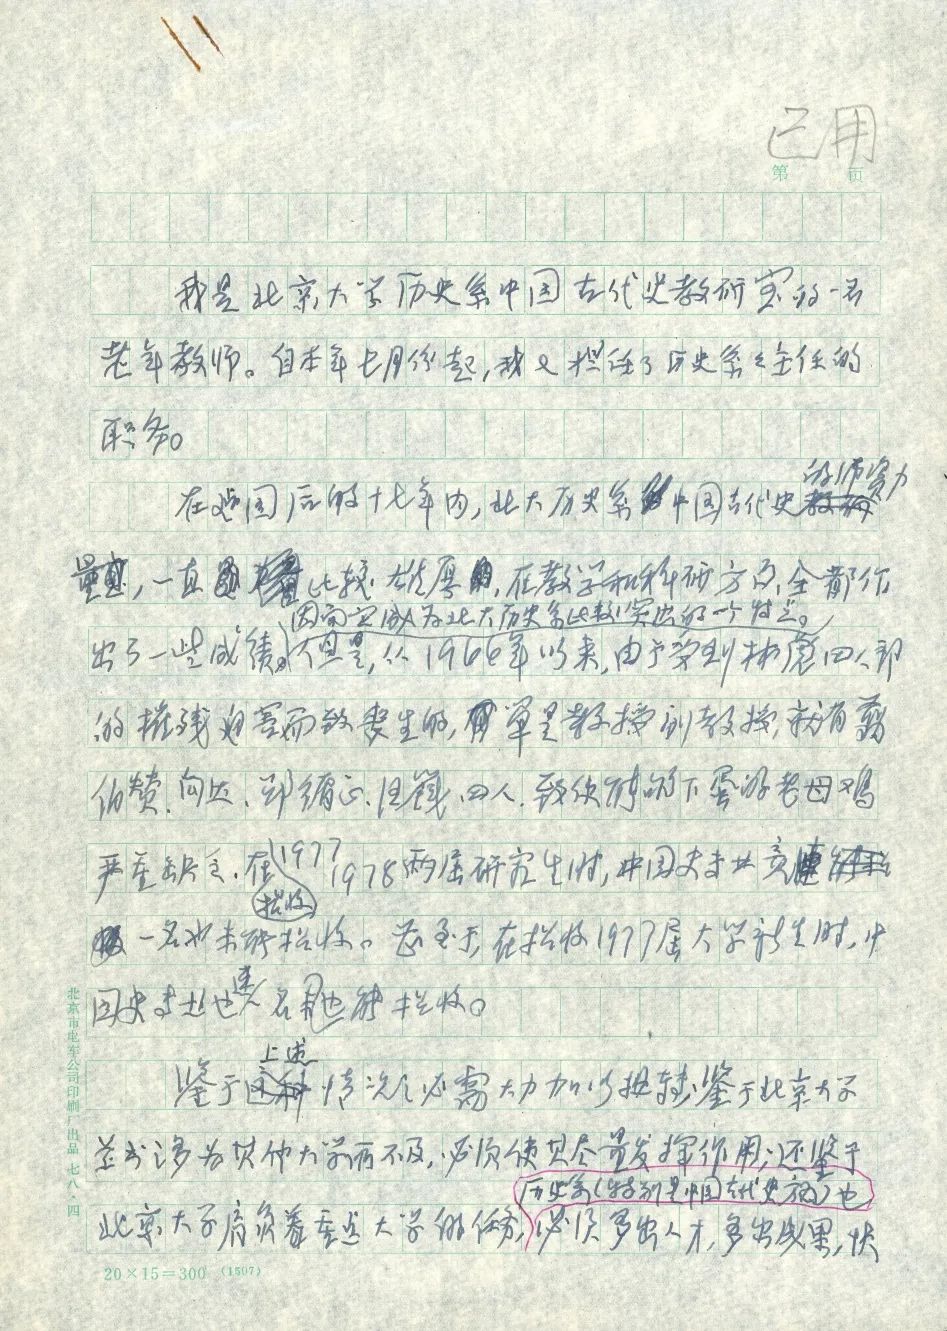 已用
第 页
我是北京大学历史系中国古代史教研室的一名
老年教师。自本年七月份起,我又担任了历史系主任的
职务。
在建国后的十七年内,北大历史系中国古代史的师资力
量,一直比较雄厚,在教学和科研方面,全都作
因而它成为北大历史系比较突出的一个特点。
出了一些成绩。但是,从1966年以来,由于受到林彪四人帮
的摧残迫害而致丧生的,单是教授副教授,就有翦
伯赞、向达、邵循正、汪籛四人,致使能够下蛋的老母鸡
严重缺乏。在招收1977 1978两届研究生时,中国史专业竟
一名也未能招收。甚至于,在招收1977届大学新生时,中
国史专业也连一名也能招收。
鉴于上述情况,必需大力加以扭转;鉴于北京大学
藏书之多为其他大学所不及,必须使其尽量发挥作用;还鉴于
历史系(特别是中国古代史方面)也
北京大学肩负着重点大学的任务,必须多出人才,多出成果,快
北京市电车公司印刷厂出品 七八·四
20×15=300 (1507)